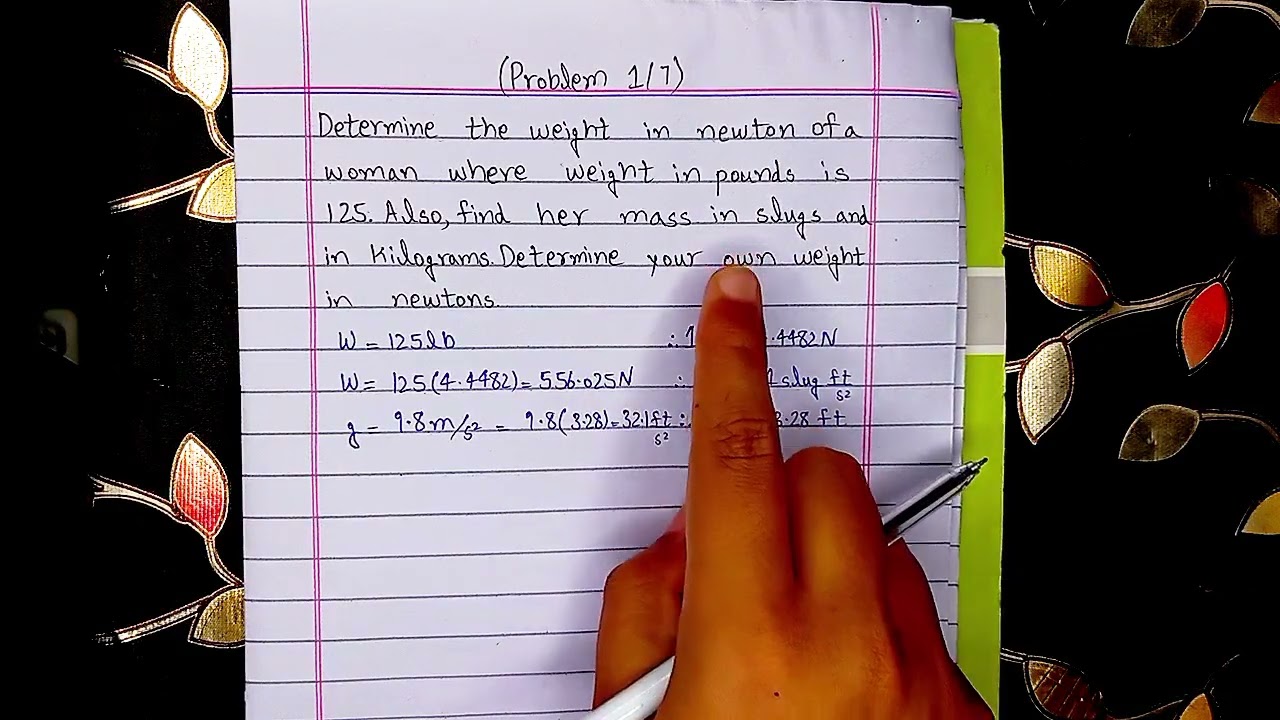 (Problem 1/7)
Determine the weight in newton of a
woman where weight in pounds is
125. Also, find her mass in slugs and
in Kilograms. Determine your own weight
in newtons.
W = 125lb ∴ 1 .4482N
W = 125(4.4482) = 556.025N ∴ slug ft/s²
g = 9.8m/s² = 9.8(3.28) = 32.1ft/s² ∴ 3.28 ft